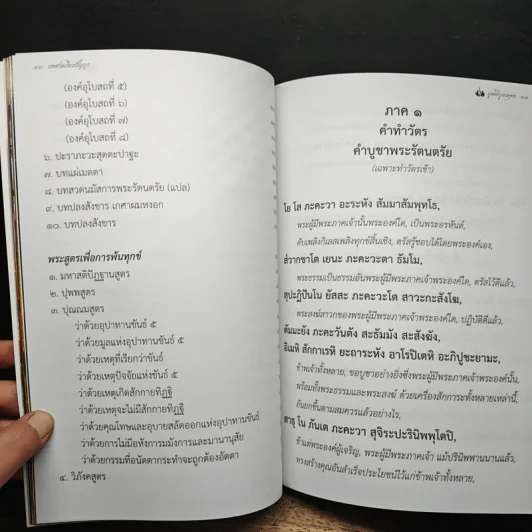 (องค์อุโบสถที่ ๕)
(องค์อุโบสถที่ ๖)
(องค์อุโบสถที่ ๗)
(องค์อุโบสถที่ ๘)
๖. ปะราภะวะสุตตะปาฐะ
๗. บทแผ่เมตตา
๘. บทสวดนมัสการพระรัตนตรัย (แปล)
๙. บทปลงสังขาร เกศาผมหงอก
๑๐. บทปลงสังขาร
พระสูตรเพื่อการพ้นทุกข์
๑. มหาสติปัฏฐานสูตร
๒. ปุพพสูตร
๓. ปุณณมสูตร
ว่าด้วยอุปาทานขันธ์ ๕
ว่าด้วยมูลแห่งอุปาทานขันธ์ ๕
ว่าด้วยเหตุที่เรียกว่าขันธ์
ว่าด้วยเหตุปัจจัยแห่งขันธ์ ๕
ว่าด้วยเหตุเกิดสักกายทิฏฐิ
ว่าด้วยเหตุจะไม่มีสักกายทิฏฐิ
ว่าด้วยคุณโทษและอุบายสลัดออกแห่งอุปาทานขันธ์
ว่าด้วยการไม่มีอหังการมมังการและมานานุสัย
ว่าด้วยกรรมที่อนัตตากระทำจะถูกต้องอัตตา
๔. วิภังคสูตร
ภาค ๑
คำทำวัตร
คำบูชาพระรัตนตรัย
(เฉพาะทำวัตรเช้า)
โย โส ภะคะวา อะระหัง สัมมาสัมพุทโธ,
พระผู้มีพระภาคเจ้านั้นพระองค์ใด, เป็นพระอรหันต์,
ดับเพลิงกิเลสเพลิงทุกข์สิ้นเชิง, ตรัสรู้ชอบได้โดยพระองค์เอง,
ส๎วากขาโต เยนะ ภะคะวะตา ธัมโม,
พระธรรมเป็นธรรมอันพระผู้มีพระภาคเจ้าพระองค์ใด, ตรัสไว้ดีแล้ว,
สุปะฏิปันโน ยัสสะ ภะคะวะโต สาวะกะสังโฆ,
พระสงฆ์สาวกของพระผู้มีพระภาคเจ้าพระองค์ใด, ปฏิบัติดีแล้ว,
ตัมมะยัง ภะคะวันตัง สะธัมมัง สะสังฆัง,
อิเมหิ สักกาเรหิ ยะถาระหัง อาโรปิเตหิ อะภิปูชะยามะ,
ข้าพเจ้าทั้งหลาย, ขอบูชาอย่างยิ่งซึ่งพระผู้มีพระภาคเจ้าพระองค์นั้น,
พร้อมทั้งพระธรรมและพระสงฆ์ ด้วยเครื่องสักการะทั้งหลายเหล่านี้,
อันยกขึ้นตามสมควรแล้วอย่างไร,
สาธุ โน ภันเต ภะคะวา สุจิระปะรินิพพุโตปิ,
ข้าแต่พระองค์ผู้เจริญ, พระผู้มีพระภาคเจ้า แม้ปรินิพพานนานแล้ว,
ทรงสร้างคุณอันสำเร็จประโยชน์ไว้แก่ข้าพเจ้าทั้งหลาย,